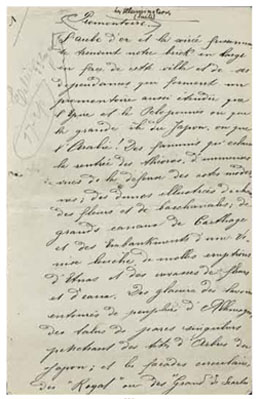 Promontoire.
L'aube d'or et la soirée frissonnante
trouvent notre brick en large
en face de cette villa et de ses
dépendances qui forment un
promontoire aussi étendu que
l'Épire et le Péloponnèse ou que
la grande île du Japon, ou que
l'Arabie! Des fanums qu'éclaire
la rentrée des théories, d'immenses
vues de la défense des côtes modernes;
des dunes illustrées de chaudes
fleurs et de bacchanales; de
grands canaux de Carthage
et des Embankments d'une Venise
louche, de molles éruptions
d'Etnas et des crevasses de fleurs
et d'eaux. Des glaciers des lavoirs
entourés de peupliers d'Allemagne,
des talus de parcs singuliers
penchant des têtes d'arbres du
Japon; et les façades circulaires
des "Royal" ou des "Grand" de Scarbro